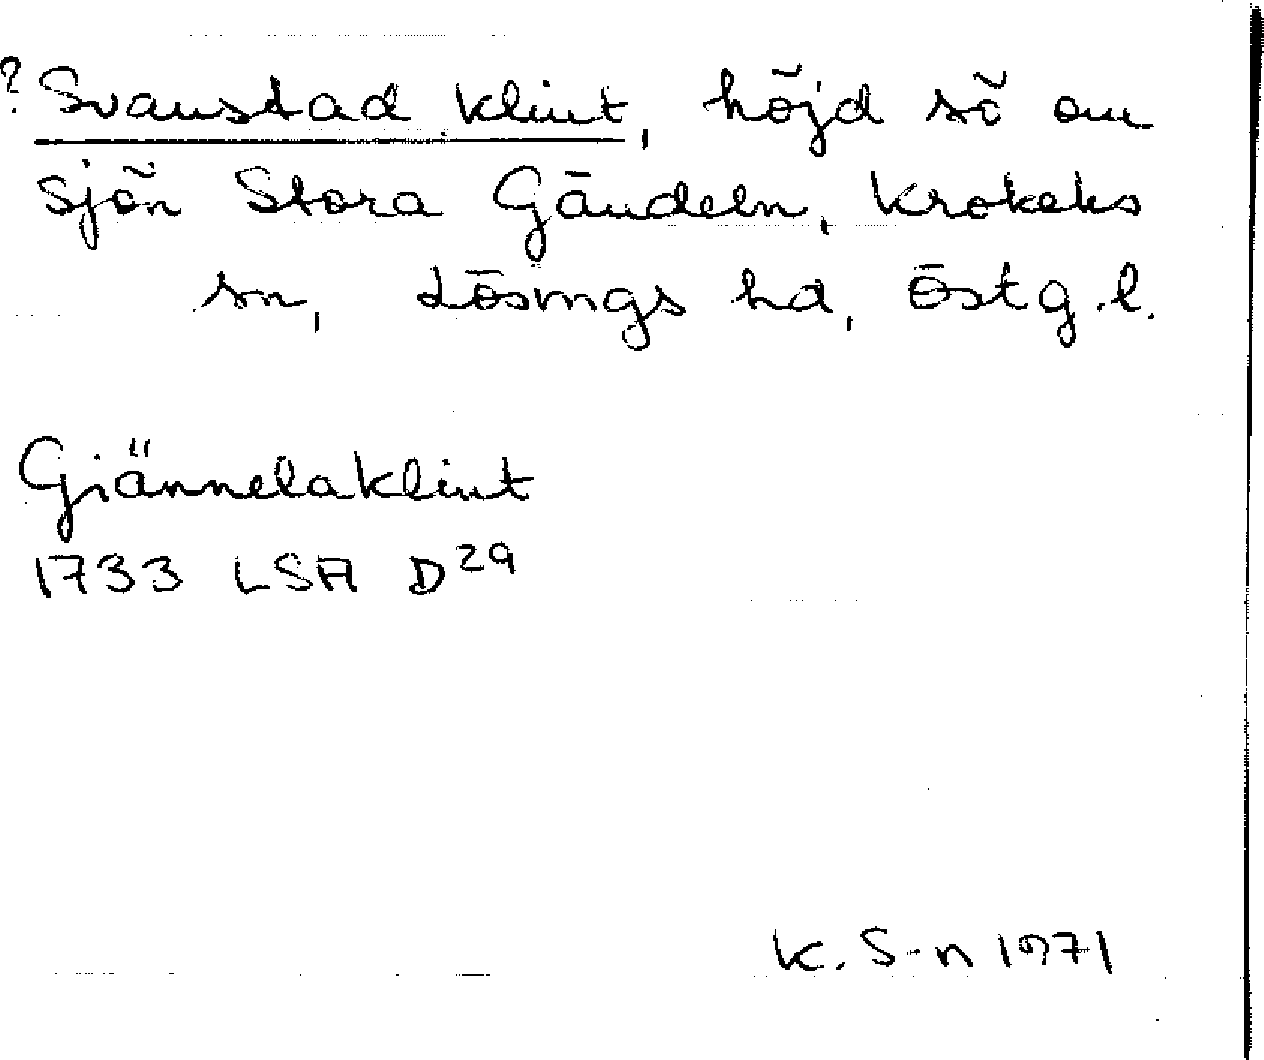 ? Svanstad klint, höjd sö om
sjön Stora Gändeln, Krokeks
sn, Lösings hd, Östg.l.
Giännelaklint
1733 LSA D29
K. S-n 1971